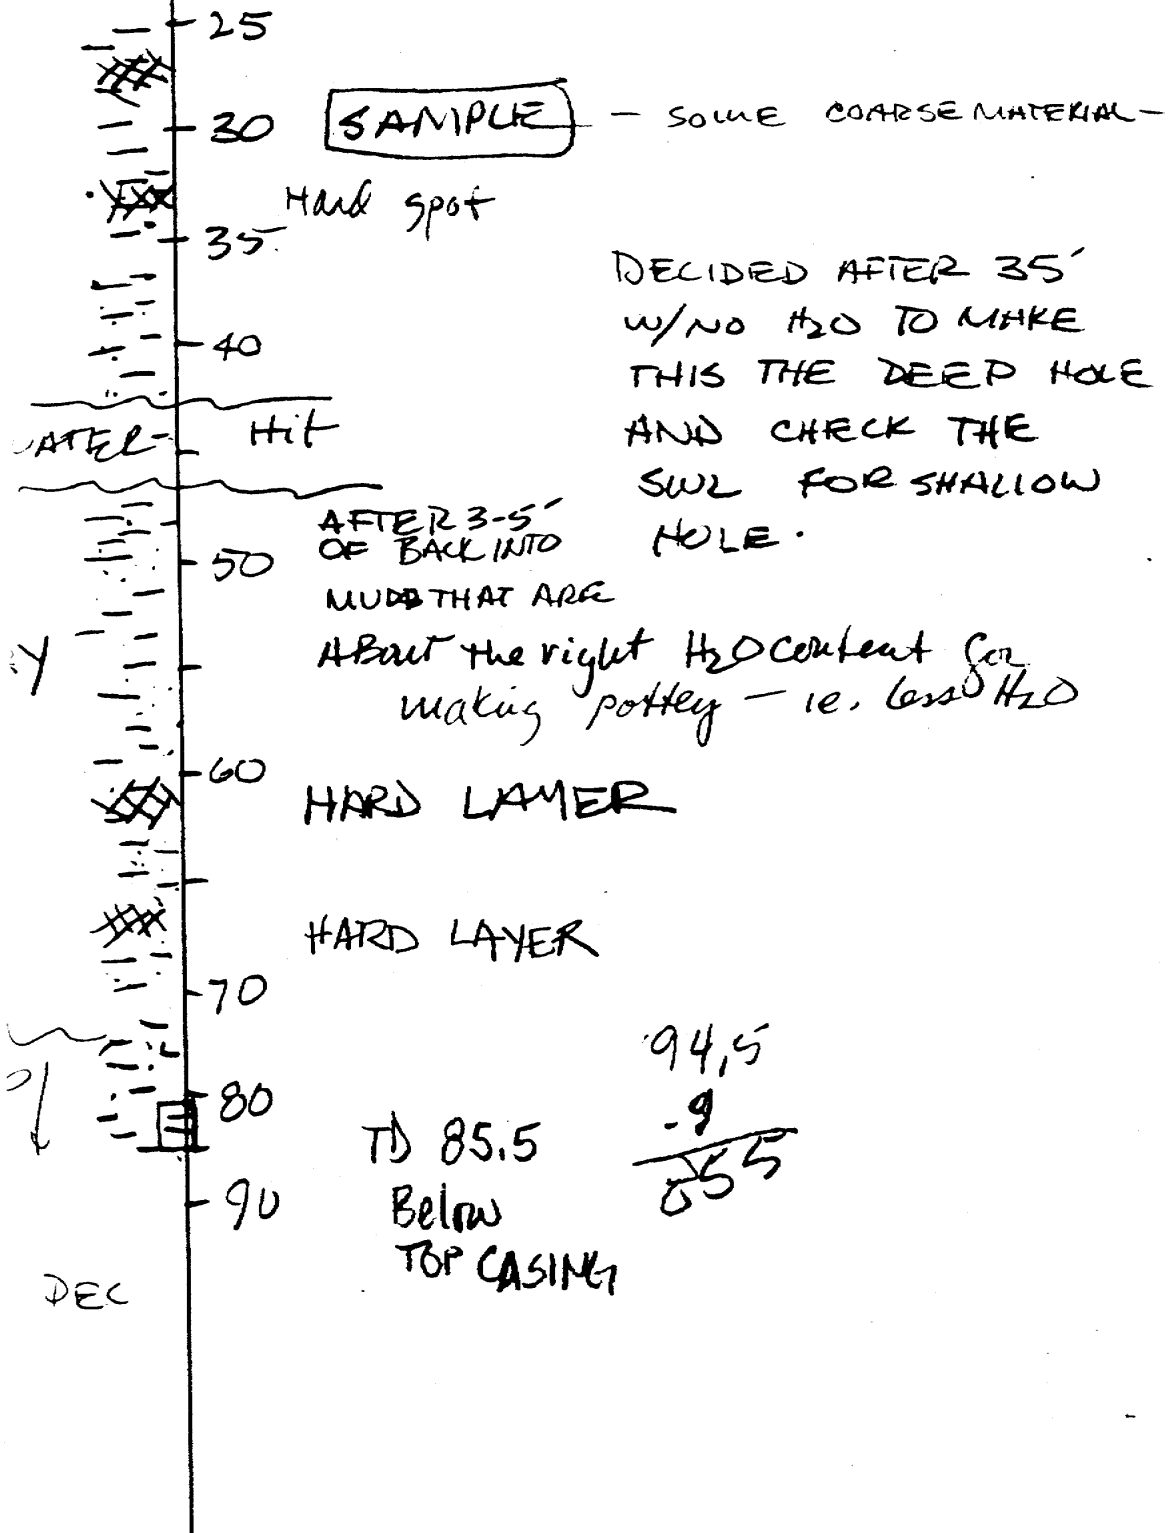 25
30 SAMPLE — SOME COARSE MATERIAL —
Hard spot
35
DECIDED AFTER 35'
W/NO H2O TO MAKE
40
THIS THE DEEP HOLE
ATER- Hit
AND CHECK THE
SWL FOR SHALLOW
HOLE.
AFTER 3-5'
OF BACK INTO
50
MUD THAT ARE
Y
ABOUT the right H2O content for
making pottey — ie. less H2O
60
HARD LAYER
HARD LAYER
70
94,5
- 9
855
80
TD 85.5
Below
TOP CASING
90
DEC